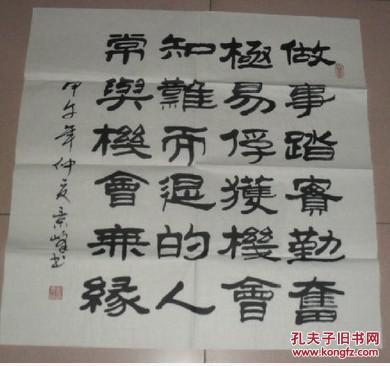 做事踏實勤奮
極易俘獲機會
知難而退的人
常與機會無緣
甲午年仲夏景峰书
孔夫子旧书网
www.kongfz.com